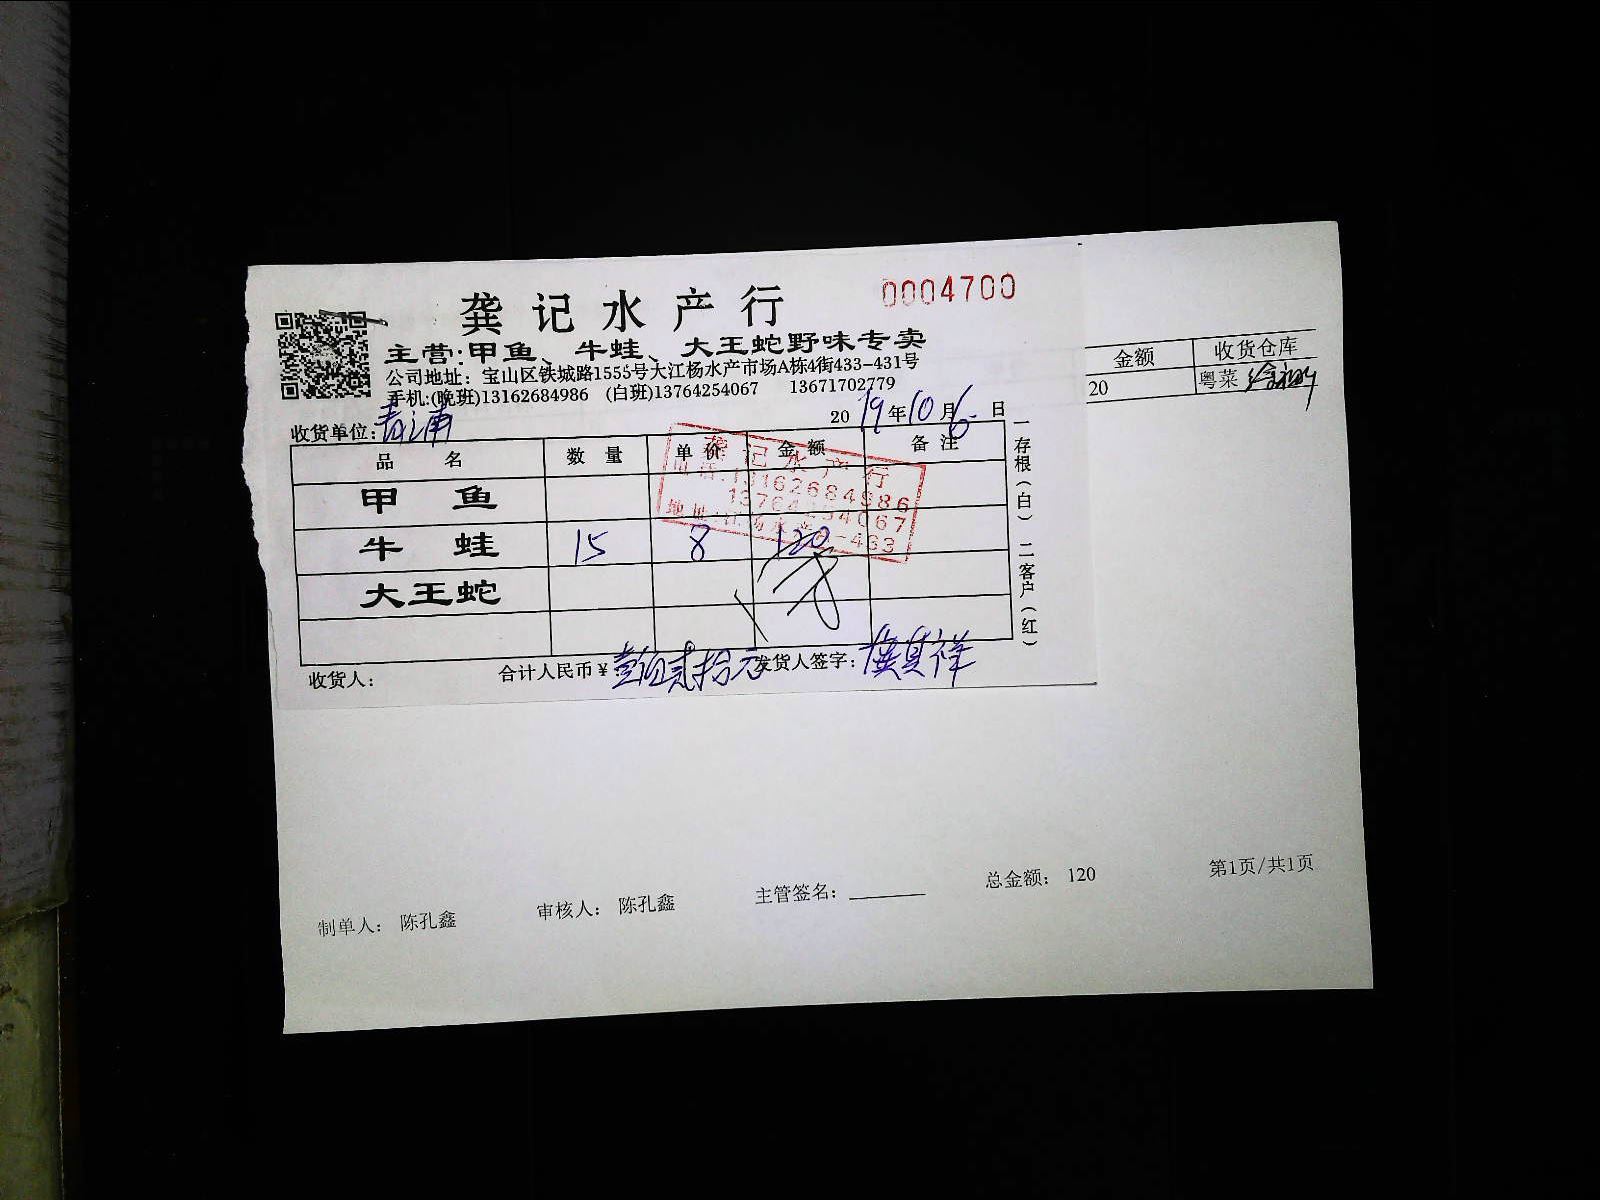 龚记水产行 0004700
主营:甲鱼、牛蛙、大王蛇野味专卖
公司地址：宝山区铁城路1555号大江杨水产市场A栋4街433-431号
手机:(晚班)13162684986 (白班)13764254067 13671702779
收货单位: 青浦 2019年10月6日
品名 数量 单价 金额 备注
甲鱼
牛蛙 15 8 120
大王蛇
收货人: 合计人民币¥: 壹佰贰拾元 发货人签字: 龚其祥
一存根(白) 二客户(红)
龚记水产行
电话:13162684986
13764254067
地址:江杨水产A-433
金额 收货仓库
20 粤菜
制单人: 陈孔鑫 审核人: 陈孔鑫 主管签名: 总金额: 120 第1页/共1页